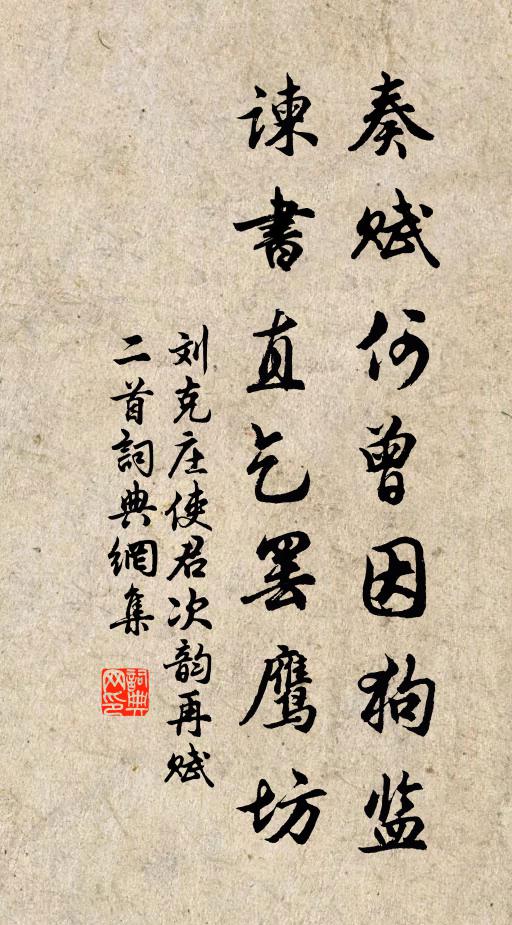 奏赋何曾因狗监
谏書直乞罢鹰坊
刘克庄使君次韵再赋
二首詞典網集
詞典网印